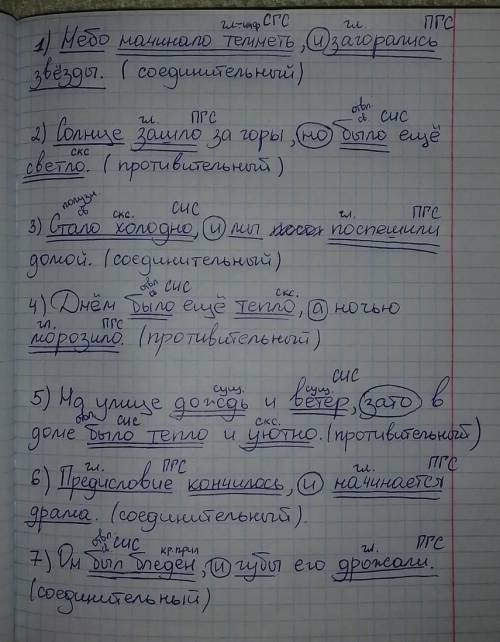 гл.+инф СГС гл. ПГС
1) Небо начинало темнеть, и загорались
звёзды. (соединительный)
гл. ПГС отвл. св СИС
2) Солнце зашло за горы, но было ещё
скс
светло. (противительный)
полузн. св скс. СИС гл. ПГС
3) Стало холодно, и мы поспешили
домой. (соединительный)
отвл. св СИС скс.
4) Днём было ещё тепло, а ночью
гл. ПГС
морозило. (противительный)
сущ. сущ. СИС
5) На улице дождь и ветер, зато в
отвл. СИС скс.
доме было тепло и уютно. (противительный)
гл. ПГС гл. ПГС
6) Предисловие кончилось, и начинается
драма. (соединительный).
отвл. св СИС кр.прил гл. ПГС
7) Он был бледен, и губы его дрожали.
(соединительный)